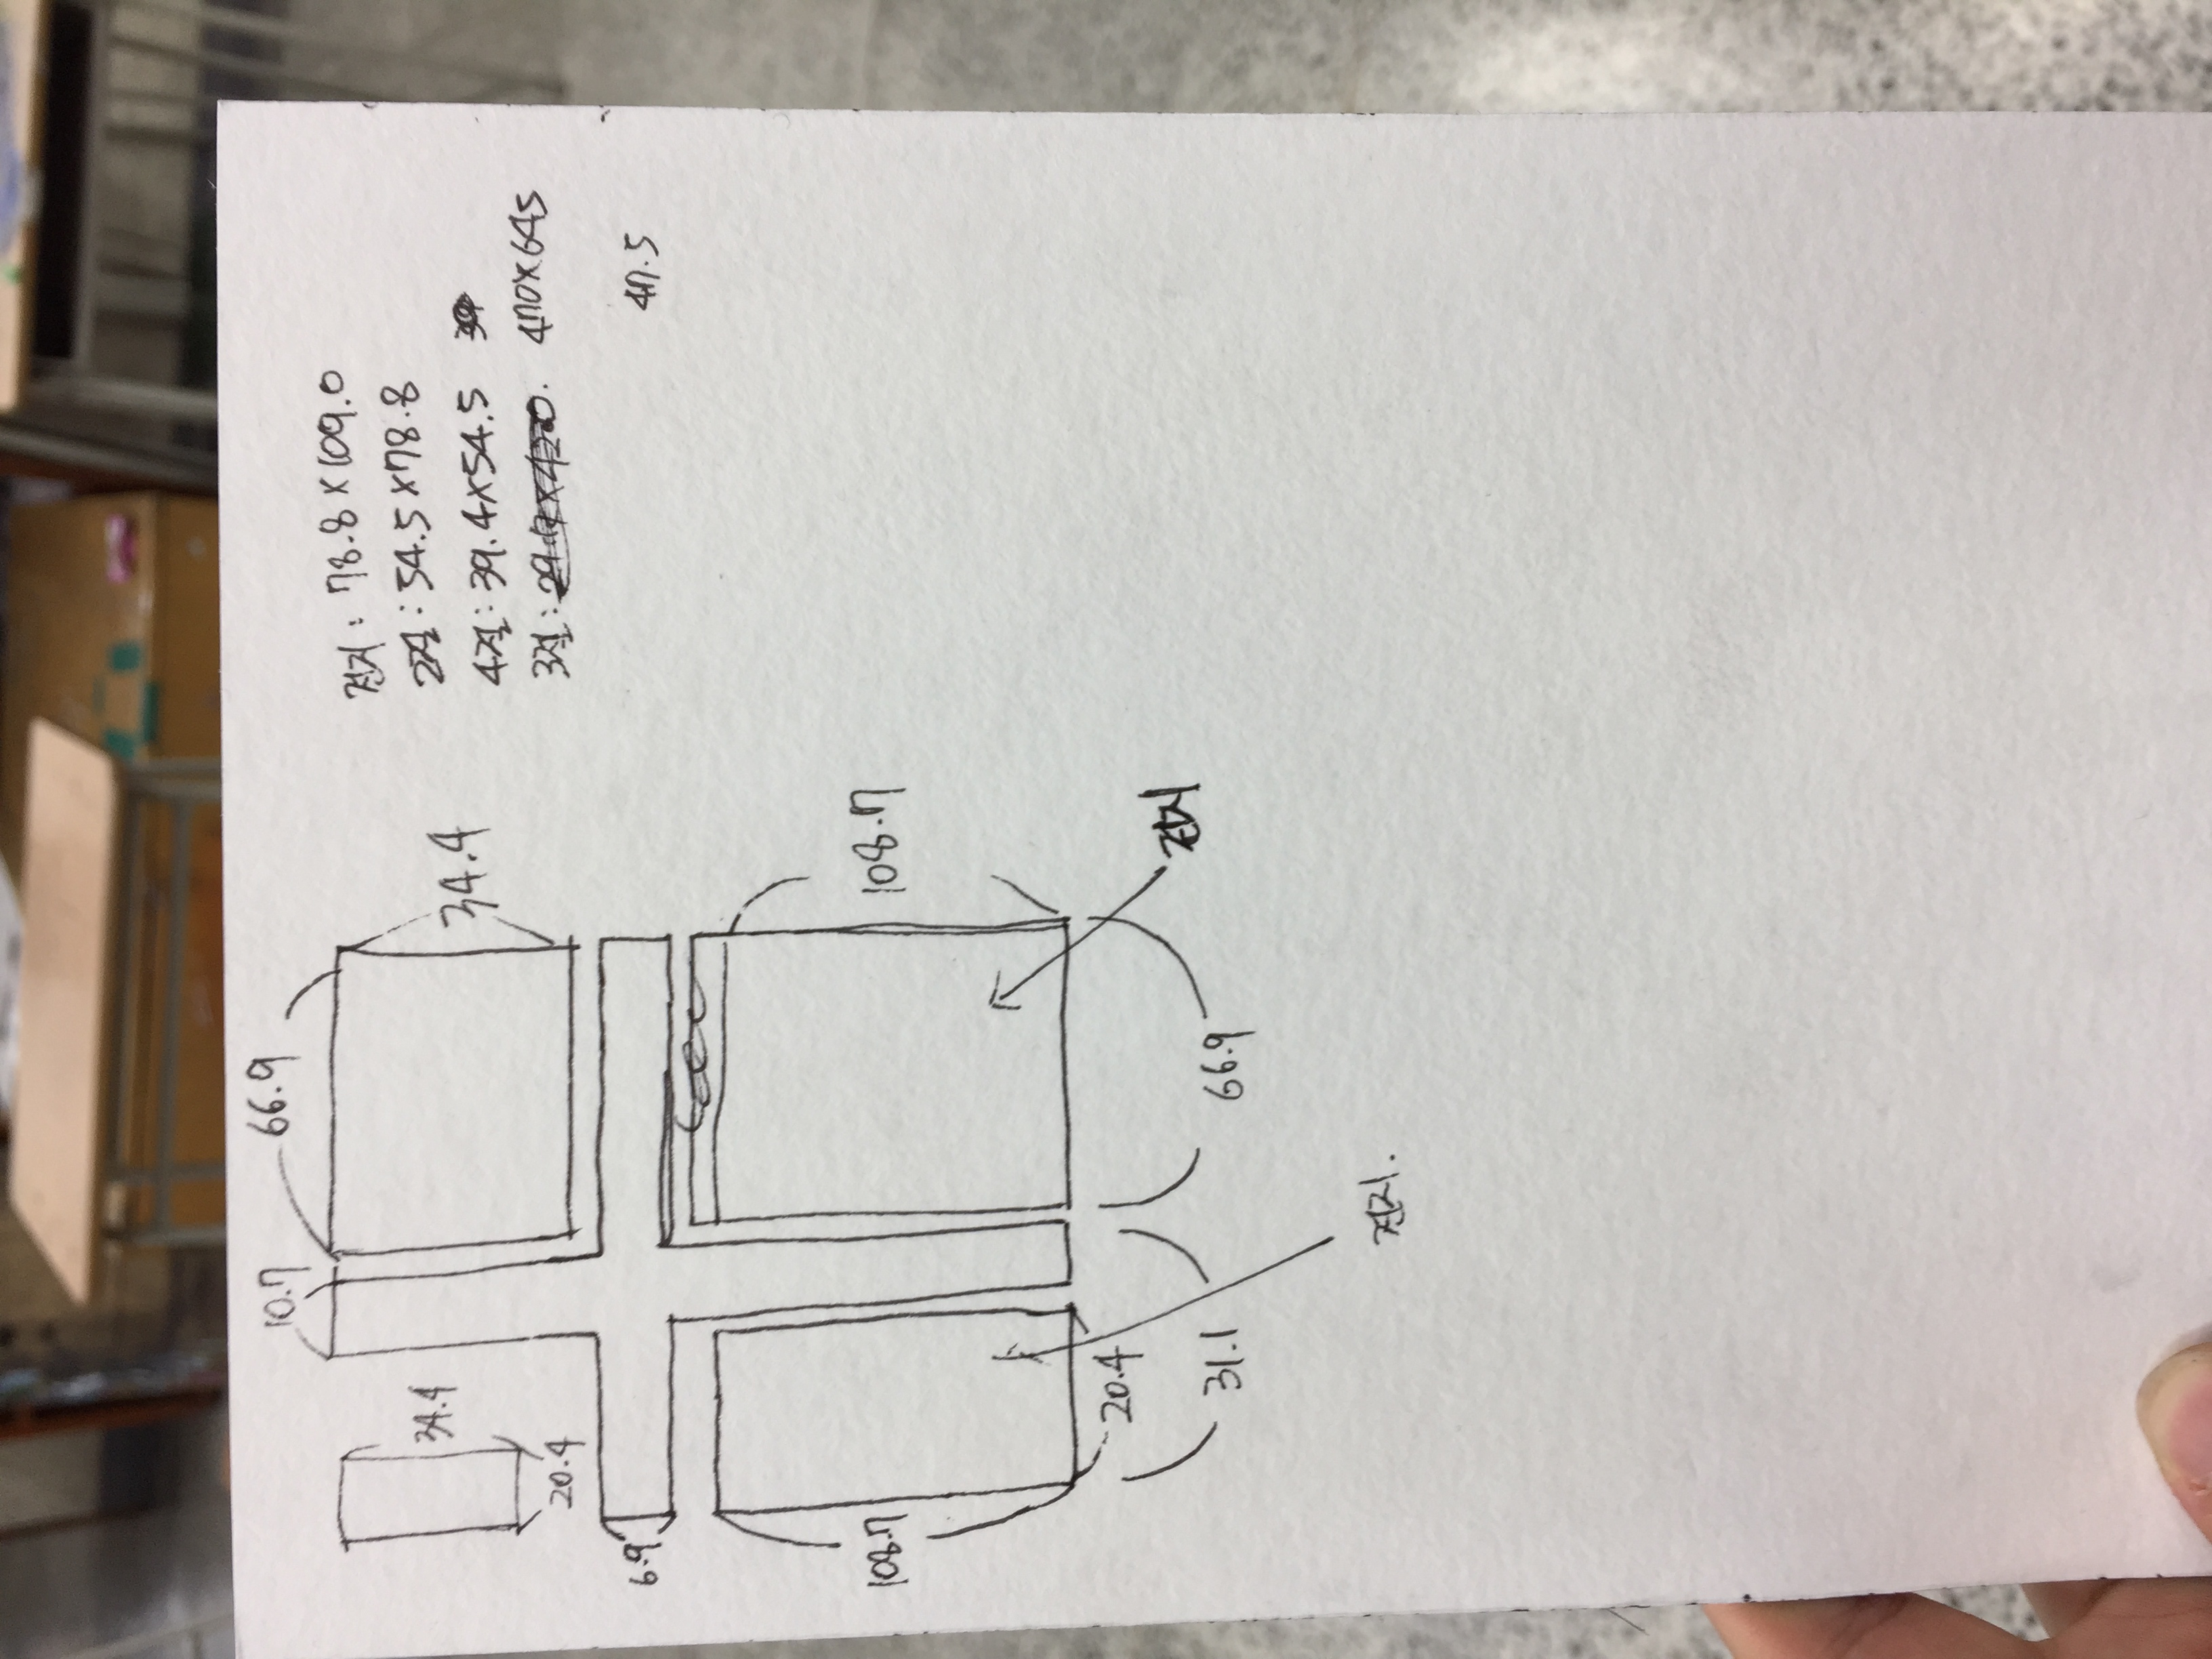 10.7
66.9
34.4
34.4
20.4
6.9
108.7
108.7
20.4
31.1
66.9
전지
전지.
전지: 78.8×109.0
2절: 54.5×78.8
4절: 39.4×54.5
3절: 470×645
47.5